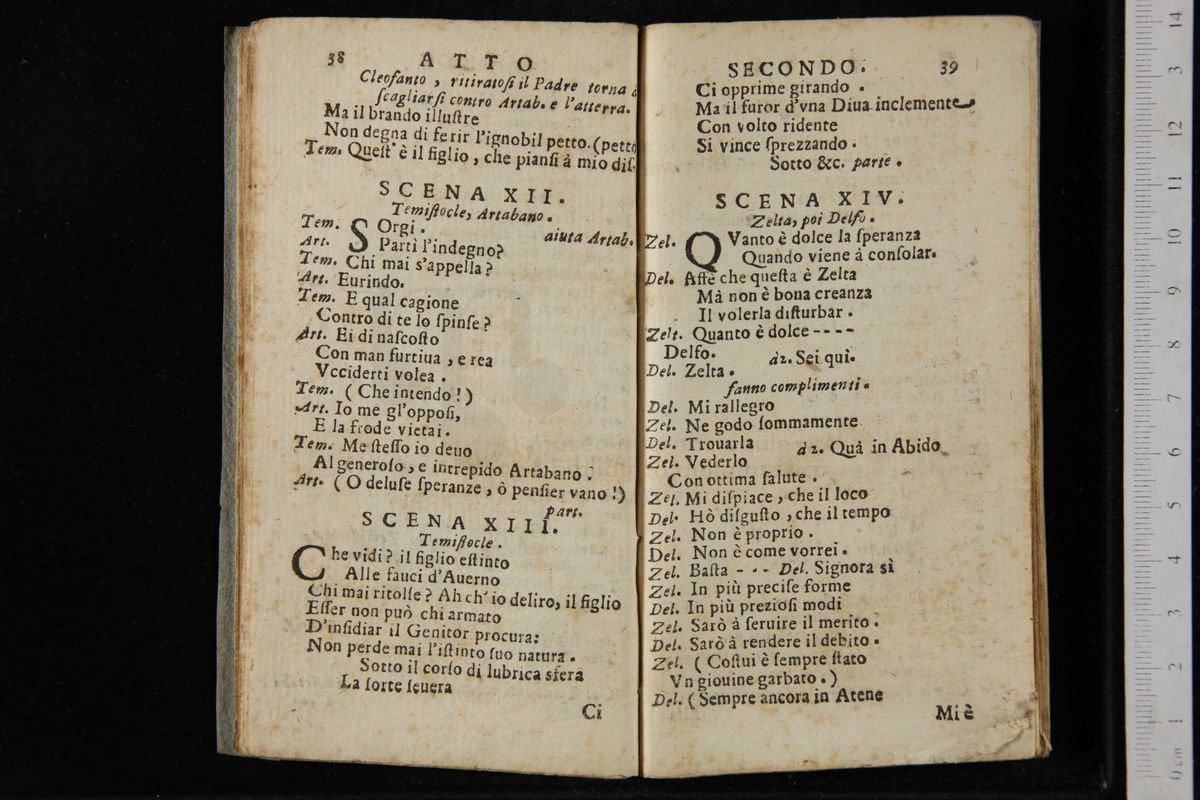 38 ATTO
Cleofanto, ritiratosi il Padre torna a
scagliarsi contro Artab. e l'atterra.
Ma il brando illustre
Non degna di ferir l'ignobil petto. (petto
Tem. Quest'è il figlio, che piansi à mio dis-
SCENA XII.
Temistocle, Artabano.
Tem. SOrgi. aiuta Artab.
Art. Partì l'indegno?
Tem. Chi mai s'appella?
Art. Eurindo.
Tem. E qual cagione
Contro di te lo spinse?
Art. Ei di nascosto
Con man furtiua, e rea
Vcciderti volea.
Tem. (Che intendo!)
Art. Io me gl'opposi,
E la frode vietai.
Tem. Me stesso io deuo
Al generoso, e intrepido Artabano.
Art. (O deluse speranze, ò pensier vano!)
part.
SCENA XIII.
Temistocle.
Che vidi? il figlio estinto
Alle fauci d'Auerno
Chi mai ritolse? Ah ch'io deliro, il figlio
Esser non può chi armato
D'insidiar il Genitor procura:
Non perde mai l'istinto suo natura.
Sotto il corso di lubrica sfera
La sorte seuera
Ci
SECONDO. 39
Ci opprime girando.
Ma il furor d'vna Diua inclemente
Con volto ridente
Si vince sprezzando.
Sotto &c. parte.
SCENA XIV.
Zelta, poi Delfo.
Zel. QVanto è dolce la speranza
Quando viene à consolar.
Del. Affè che questa è Zelta
Mà non è bona creanza
Il volerla disturbar.
Zelt. Quanto è dolce - - - -
Delfo. à 2. Sei quì.
Del. Zelta.
fanno complimenti.
Del. Mi rallegro
Zel. Ne godo sommamente
Del. Trouarla à 2. Quà in Abido
Zel. Vederlo
Con ottima salute.
Zel. Mi dispiace, che il loco
Del. Hò disgusto, che il tempo
Zel. Non è proprio.
Del. Non è come vorrei.
Zel. Basta - - - Del. Signora sì
Zel. In più precise forme
Del. In più preziosi modi
Zel. Sarò à seruire il merito.
Del. Sarò à rendere il debito.
Zel. (Costui è sempre stato
Vn giouine garbato.)
Del. (Sempre ancora in Atene
Mi è
0 cm 1 2 3 4 5 6 7 8 9 10 11 12 3 14